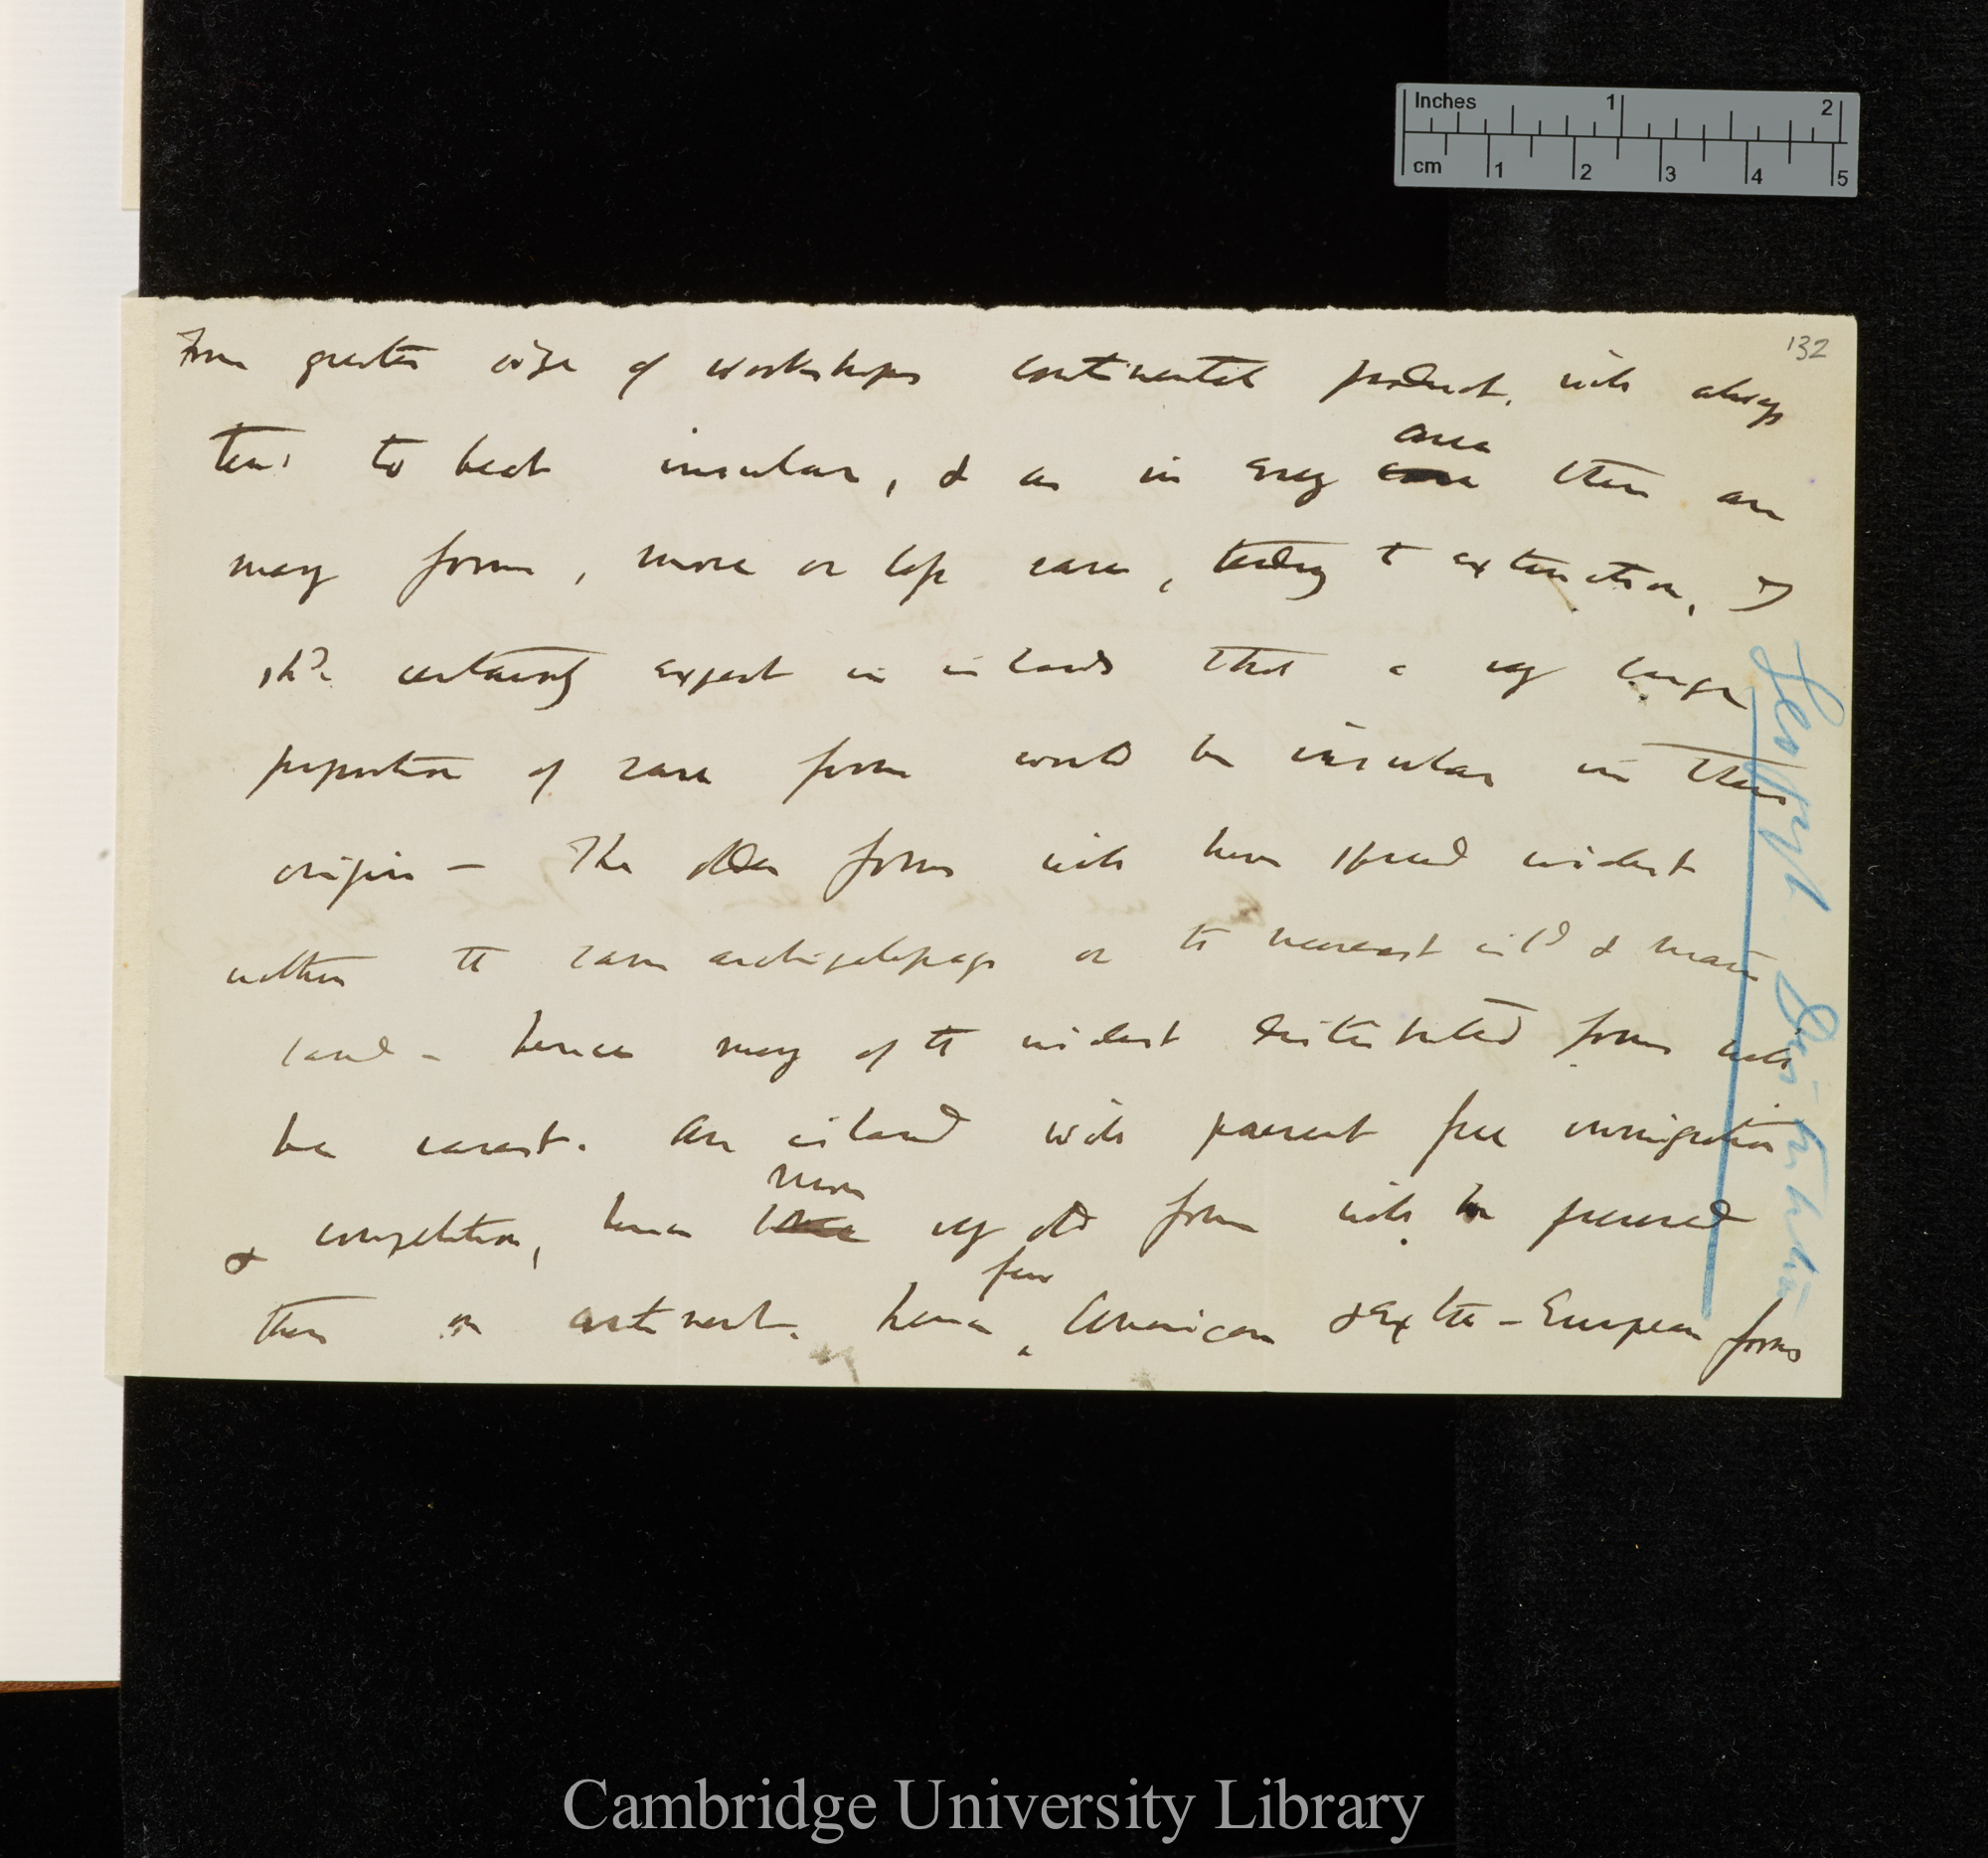 Inches 1 2
cm 1 2 3 4 5
132
From greater size of workshops continental product, will always
tend to beat insular, & as in every area there are
many forms, more or less rare, tending to extinction, I
shd. certainly expect in islands that a very large
proportion of rare forms would be insular in their
origin — The older forms will have spread widest
within the same archipelago or to nearest isld & main
land — hence many of the widest distributed forms will
be rarest. An island will prevent free immigration
& competition, hence more very old forms will be preserved
there on continent. hence few American & Extra-European forms
Geograph. Distribution
Cambridge University Library